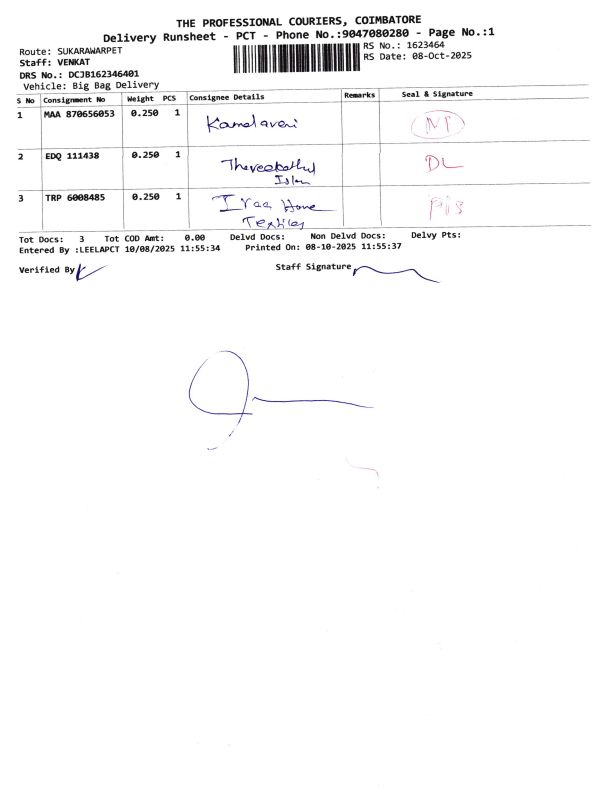 THE PROFESSIONAL COURIERS, COIMBATORE
Delivery Runsheet - PCT - Phone No.:9047080280 - Page No.:1
Route: SUKARAWARPET
RS No.: 1623464
Staff: VENKAT
RS Date: 08-Oct-2025
DRS No.: DCJB162346401
Vehicle: Big Bag Delivery
S No Consignment No Weight PCS Consignee Details Remarks Seal & Signature
1 MAA 870656053 0.250 1 Kamalaveni
2 EDQ 111438 0.250 1 DL
3 TRP 6008485 0.250 1 Iraa Home
Textiles
Tot Docs: 3 Tot COD Amt: 0.00 Delvd Docs: Non Delvd Docs: Delvy Pts:
Entered By :LEELAPCT 10/08/2025 11:55:34 Printed On: 08-10-2025 11:55:37
Verified By
Staff Signature